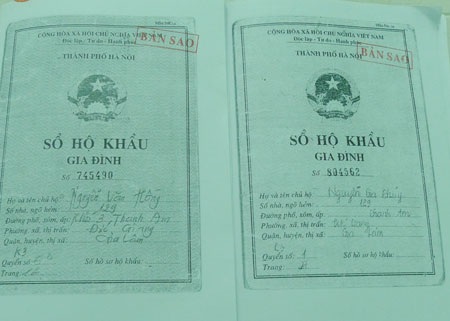 CỘNG HÒA XÃ HỘI CHỦ NGHĨA VIỆT NAM
Độc lập - Tự do - Hạnh phúc
BẢN SAO
THÀNH PHỐ HÀ NỘI
SỔ HỘ KHẨU
GIA ĐÌNH
Số 745490
Họ và tên chủ hộ: Nguyễn Văn
Số nhà, ngõ hẻm: 129
Đường phố, xóm, ấp: 3 Thanh Am
Phường, xã, thị trấn:
Quận, huyện, thị xã: Gia Lâm
Quyển số:
Số hồ sơ hộ khẩu:
Trang
CỘNG HÒA XÃ HỘI CHỦ NGHĨA VIỆT NAM
Độc lập - Tự do - Hạnh phúc
BẢN SAO
THÀNH PHỐ HÀ NỘI
SỔ HỘ KHẨU
GIA ĐÌNH
Số 804562
Họ và tên chủ hộ: Nguyễn
Số nhà, ngõ hẻm: 129
Đường phố, xóm, ấp: Thanh Am
Phường, xã, thị trấn:
Quận, huyện, thị xã: Gia Lâm
Quyển số: 1
Số hồ sơ hộ khẩu:
Trang